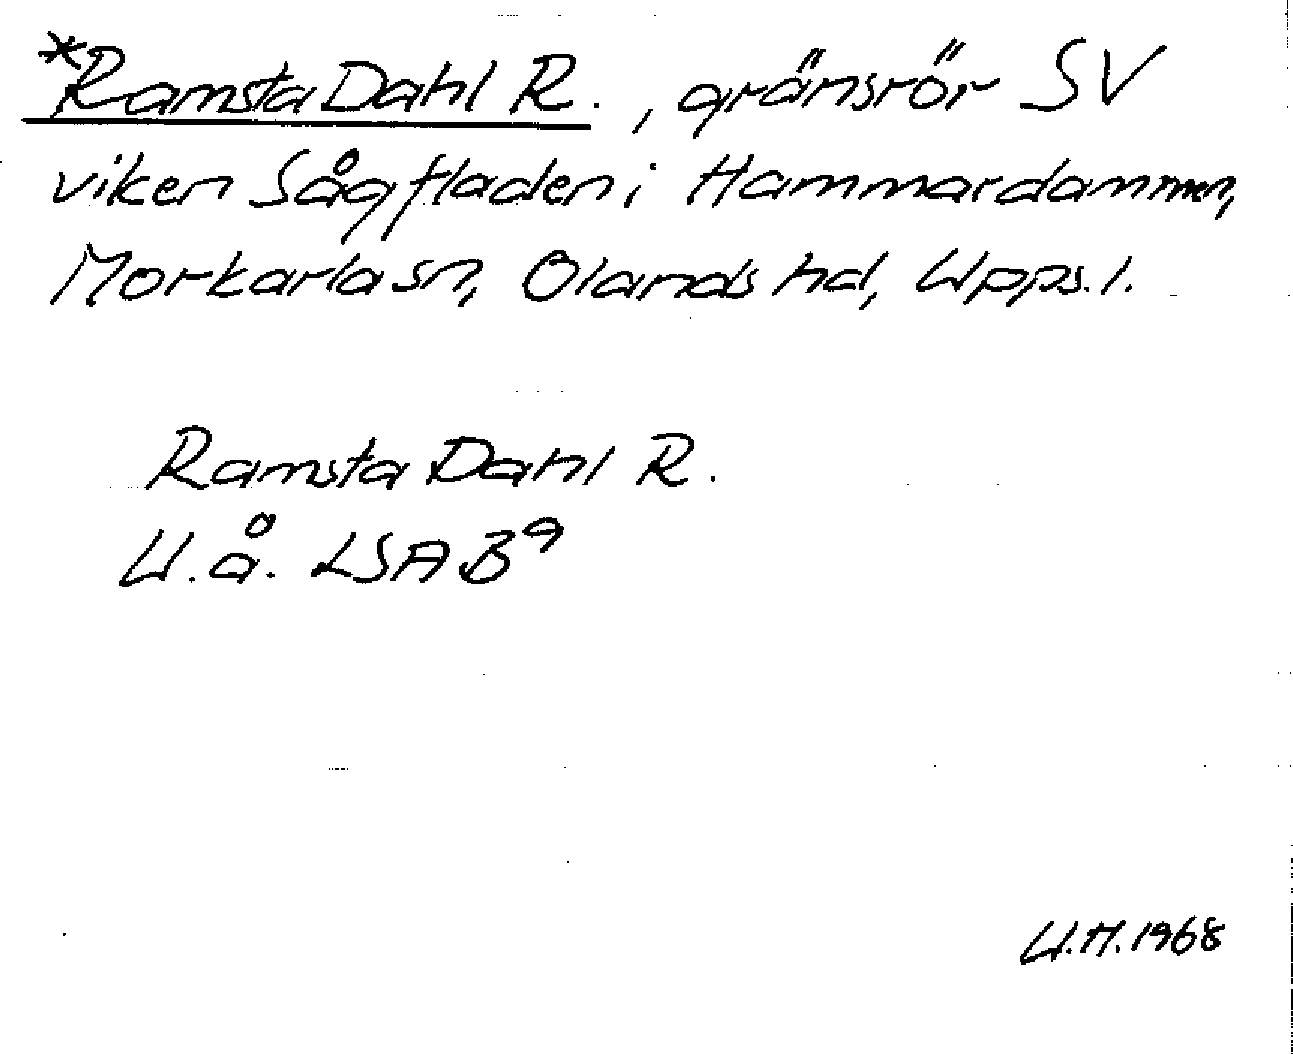 *Ramsta Dahl R., gränsrör SV
viken Sågfladen i Hammardammen,
Morkarla sn, Olands hd, Upps. l.
Ramsta Dahl R.
U.å. LSA B9
U.H. 1968